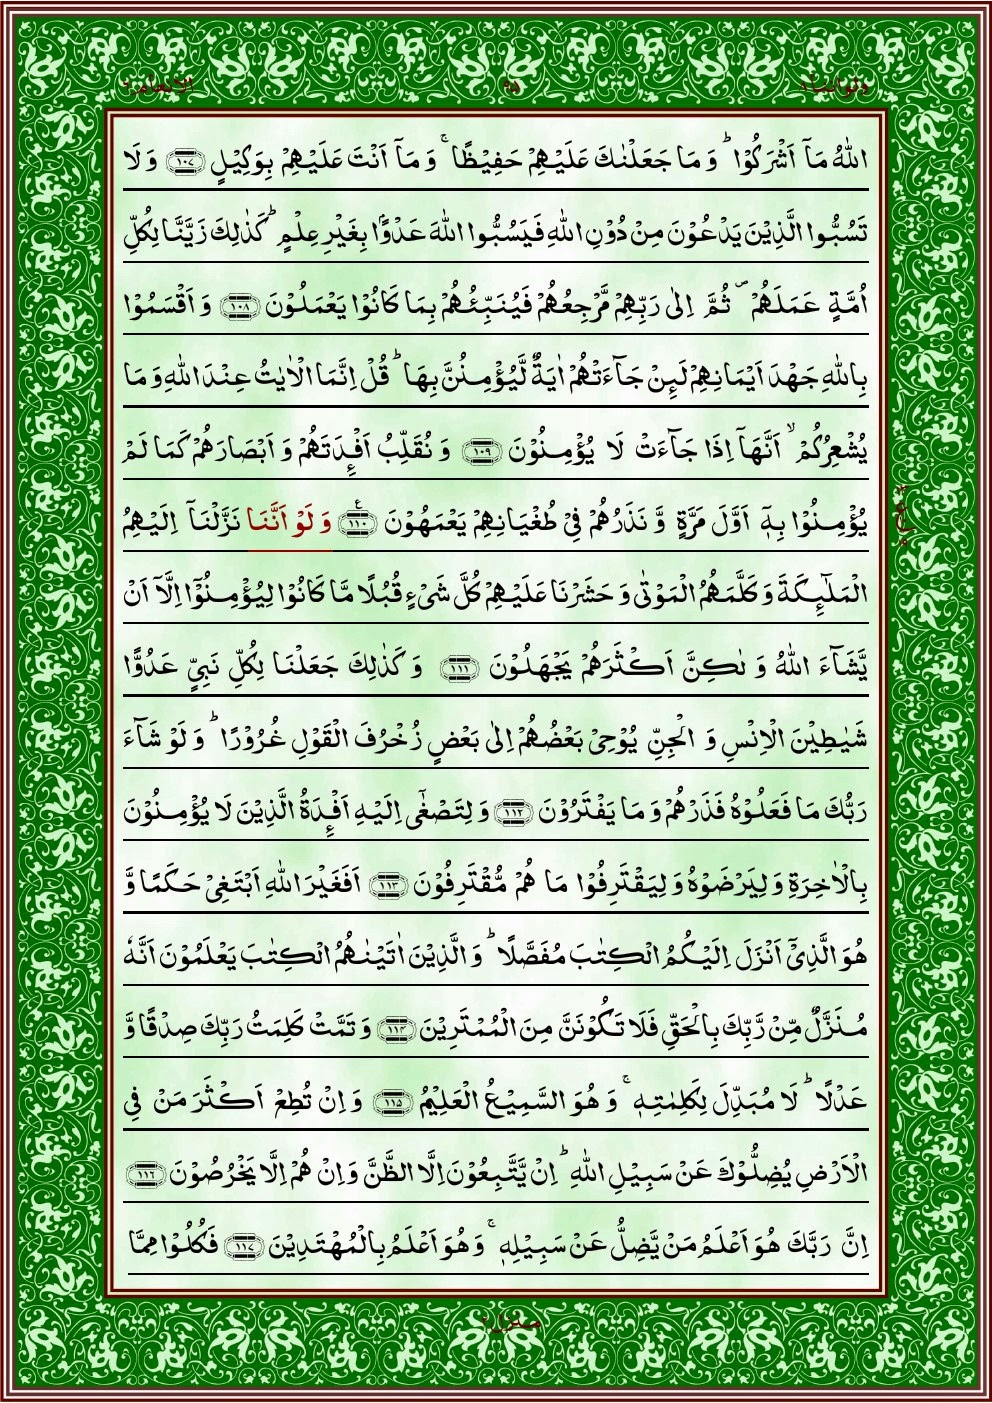 ولواننا ۸ الانعام ۶
اللّٰهُ مَاۤ اَشْرَكُوْا ؕ وَ مَا جَعَلْنٰكَ عَلَیْهِمْ حَفِیْظًا ۚ وَ مَاۤ اَنْتَ عَلَیْهِمْ بِوَكِیْلٍ ۝۱۰۷ وَ لَا
تَسُبُّوا الَّذِیْنَ یَدْعُوْنَ مِنْ دُوْنِ اللّٰهِ فَیَسُبُّوا اللّٰهَ عَدْوًۢا بِغَیْرِ عِلْمٍ ؕ كَذٰلِكَ زَیَّنَّا لِكُلِّ
اُمَّةٍ عَمَلَهُمْ ۪ ثُمَّ اِلٰی رَبِّهِمْ مَّرْجِعُهُمْ فَیُنَبِّئُهُمْ بِمَا كَانُوْا یَعْمَلُوْنَ ۝۱۰۸ وَ اَقْسَمُوْا
بِاللّٰهِ جَهْدَ اَیْمَانِهِمْ لَىِٕنْ جَآءَتْهُمْ اٰیَةٌ لَّیُؤْمِنُنَّ بِهَا ؕ قُلْ اِنَّمَا الْاٰیٰتُ عِنْدَ اللّٰهِ وَ مَا
یُشْعِرُكُمْ ۙ اَنَّهَاۤ اِذَا جَآءَتْ لَا یُؤْمِنُوْنَ ۝۱۰۹ وَ نُقَلِّبُ اَفْـِٕدَتَهُمْ وَ اَبْصَارَهُمْ كَمَا لَمْ
یُؤْمِنُوْا بِهٖۤ اَوَّلَ مَرَّةٍ وَّ نَذَرُهُمْ فِیْ طُغْیَانِهِمْ یَعْمَهُوْنَ ۝۱۱۰ ع وَ لَوْ اَنَّنَا نَزَّلْنَاۤ اِلَیْهِمُ
الْمَلٰٓىِٕكَةَ وَ كَلَّمَهُمُ الْمَوْتٰی وَ حَشَرْنَا عَلَیْهِمْ كُلَّ شَیْءٍ قُبُلًا مَّا كَانُوْا لِیُؤْمِنُوْۤا اِلَّاۤ اَنْ
یَّشَآءَ اللّٰهُ وَ لٰكِنَّ اَكْثَرَهُمْ یَجْهَلُوْنَ ۝۱۱۱ وَ كَذٰلِكَ جَعَلْنَا لِكُلِّ نَبِیٍّ عَدُوًّا
شَیٰطِیْنَ الْاِنْسِ وَ الْجِنِّ یُوْحِیْ بَعْضُهُمْ اِلٰی بَعْضٍ زُخْرُفَ الْقَوْلِ غُرُوْرًا ؕ وَ لَوْ شَآءَ
رَبُّكَ مَا فَعَلُوْهُ فَذَرْهُمْ وَ مَا یَفْتَرُوْنَ ۝۱۱۲ وَ لِتَصْغٰۤی اِلَیْهِ اَفْـِٕدَةُ الَّذِیْنَ لَا یُؤْمِنُوْنَ
بِالْاٰخِرَةِ وَ لِیَرْضَوْهُ وَ لِیَقْتَرِفُوْا مَا هُمْ مُّقْتَرِفُوْنَ ۝۱۱۳ اَفَغَیْرَ اللّٰهِ اَبْتَغِیْ حَكَمًا وَّ
هُوَ الَّذِیْۤ اَنْزَلَ اِلَیْكُمُ الْكِتٰبَ مُفَصَّلًا ؕ وَ الَّذِیْنَ اٰتَیْنٰهُمُ الْكِتٰبَ یَعْلَمُوْنَ اَنَّهٗ
مُنَزَّلٌ مِّنْ رَّبِّكَ بِالْحَقِّ فَلَا تَكُوْنَنَّ مِنَ الْمُمْتَرِیْنَ ۝۱۱۴ وَ تَمَّتْ كَلِمَتُ رَبِّكَ صِدْقًا وَّ
عَدْلًا ؕ لَا مُبَدِّلَ لِكَلِمٰتِهٖ ۚ وَ هُوَ السَّمِیْعُ الْعَلِیْمُ ۝۱۱۵ وَ اِنْ تُطِعْ اَكْثَرَ مَنْ فِی
الْاَرْضِ یُضِلُّوْكَ عَنْ سَبِیْلِ اللّٰهِ ؕ اِنْ یَّتَّبِعُوْنَ اِلَّا الظَّنَّ وَ اِنْ هُمْ اِلَّا یَخْرُصُوْنَ ۝۱۱۶
اِنَّ رَبَّكَ هُوَ اَعْلَمُ مَنْ یَّضِلُّ عَنْ سَبِیْلِهٖ ۚ وَ هُوَ اَعْلَمُ بِالْمُهْتَدِیْنَ ۝۱۱۷ فَكُلُوْا مِمَّا
منزل ۲